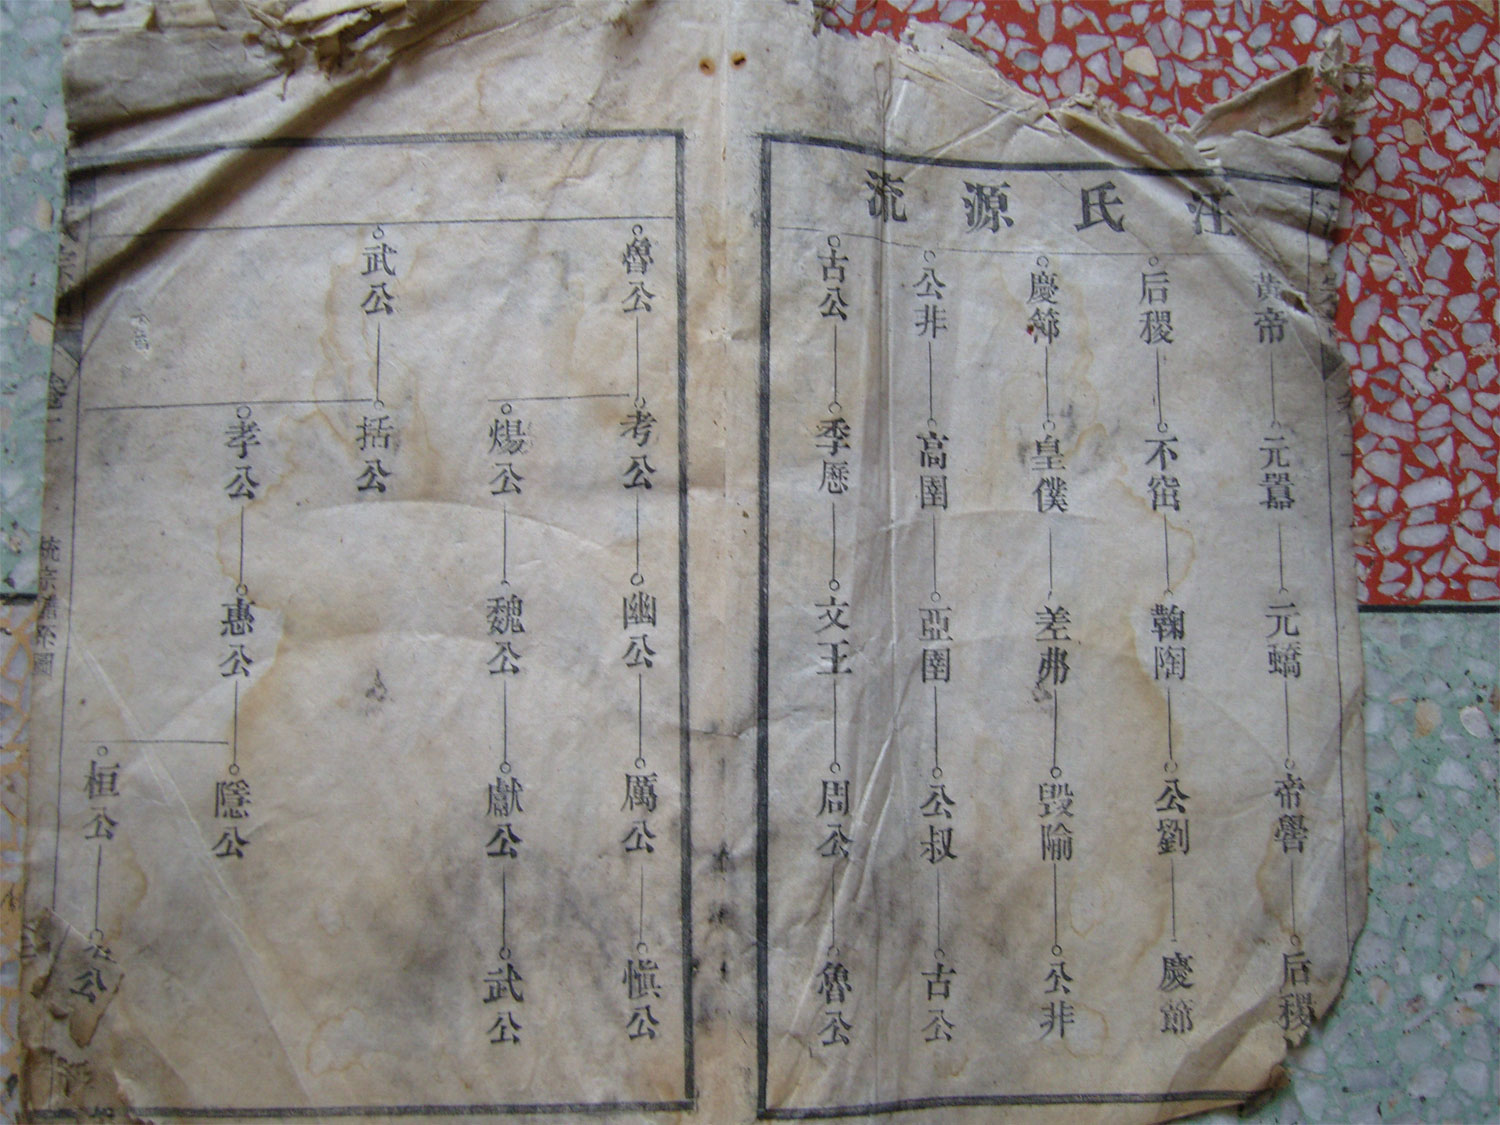 汪氏源流
黃帝 元囂 元蟜 帝嚳 后稷
后稷 不窋 鞠陶 公劉 慶節
慶節 皇僕 差弗 毀隃 公非
公非 高圉 亞圉 公叔 古公
古公 季歷 文王 周公 魯公
魯公 考公 幽公 厲公 慎公
煬公 魏公 獻公 武公
武公 括公
孝公 惠公 隱公
桓公 公
統宗譜系圖